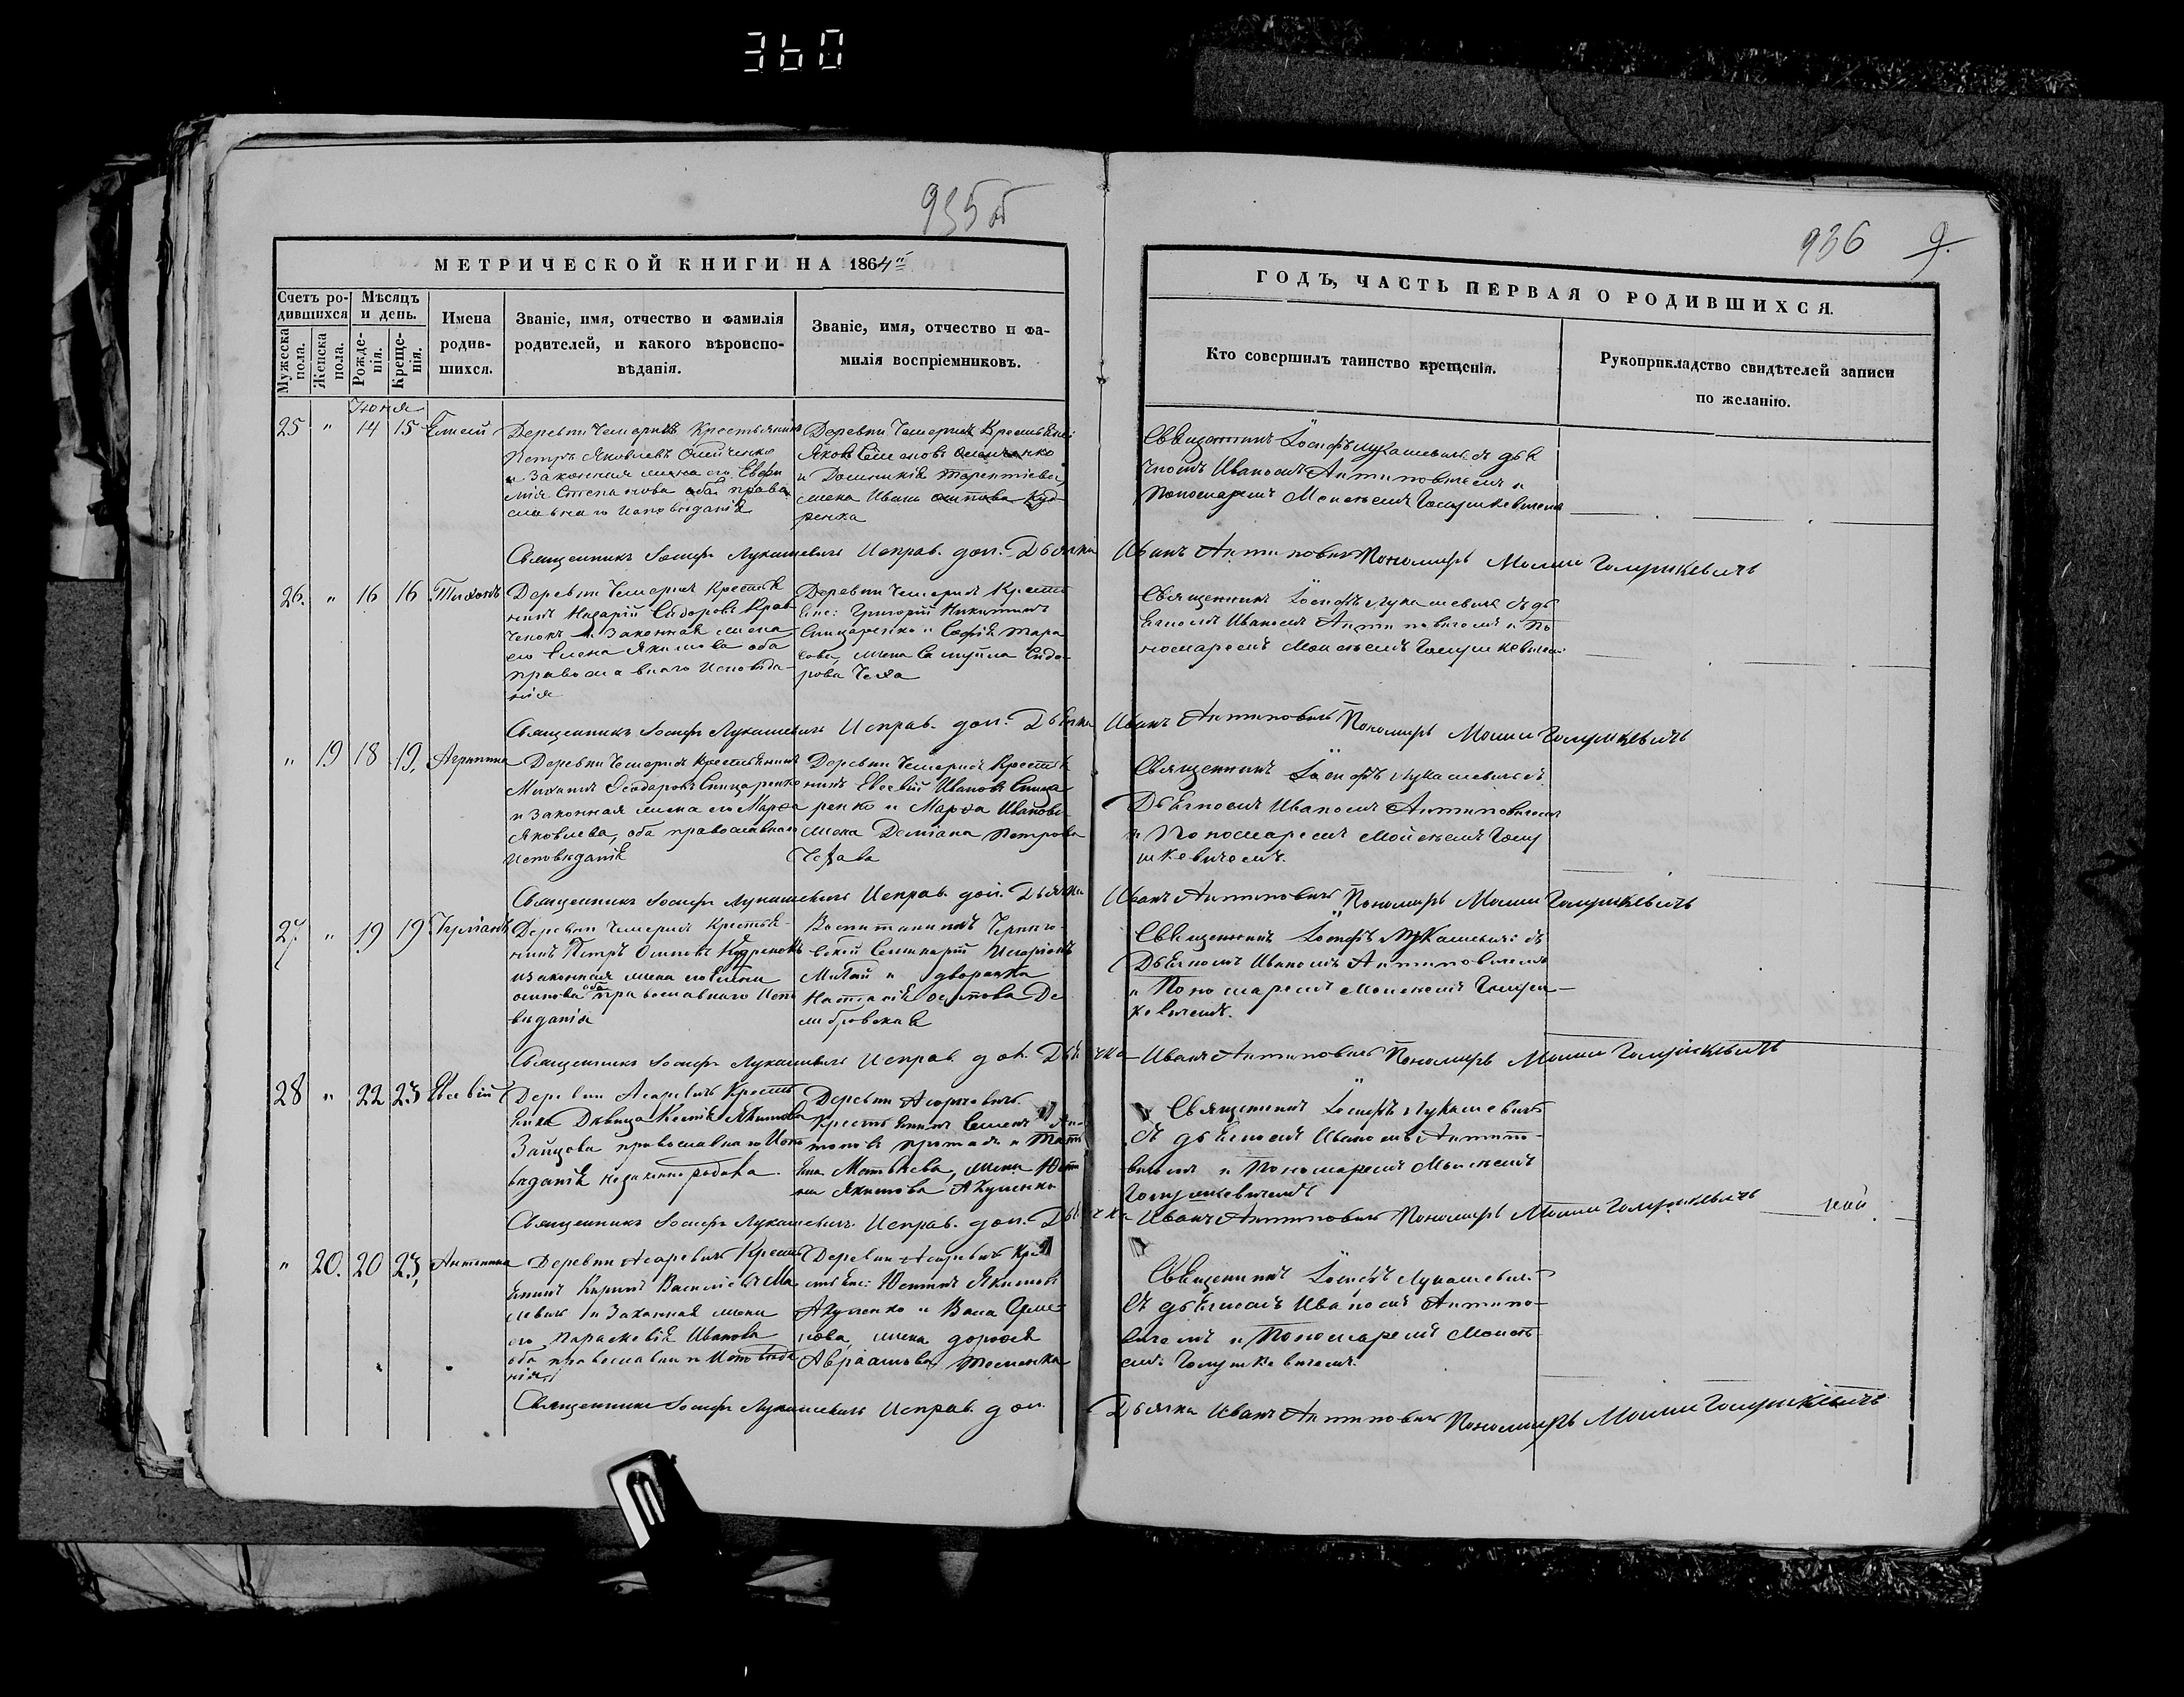 360
935об
936 9.
МЕТРИЧЕСКОЙ КНИГИ НА 1864й
ГОДЪ, ЧАСТЬ ПЕРВАЯ О РОДИВШИХСЯ.
Счетъ ро-
дившихся
Мужеска пола.
Женска пола.
Мѣсяцъ
и день.
Рожде-
нія.
Креще-
нія.
Имена
родив-
шихся.
Званіе, имя, отчество и фамилія
родителей, и какого вѣроиспо-
вѣданія.
Званіе, имя, отчество и фа-
милія воспріемниковъ.
Кто совершилъ таинство крещенія.
Рукоприкладство свидѣтелей записи
по желанію.
Іюня
25 " 14 15 Елисей
Деревни Чемерихъ Крестьянинъ
Петръ Яковлевъ
и Законная жена его Евфи
мія Степанова оба право
славнаго исповѣданія
Деревни Чемерихъ Крестьяне:
Яковъ Семеновъ
и Домникія Терентіева,
жена Ивана Осипова Куд
ренка
Священникъ Іосифъ Лукашевичъ съ дья
чкомъ Иваномъ Антиповичемъ и
Пономаремъ Моисеемъ Гомушкевичемъ
Священникъ Іосифъ Лукашевичъ Исправ. дол. Дьячка Иванъ Антиповичъ Пономарь Моисей Гомушкевичъ
26. " 16 16 Тихонъ
Деревни Чемерихъ Крестья
нинъ Назарій Сидоровъ Крав
ченокъ и Законная жена
его Елена Якимова оба
православнаго Исповѣда-
нія
Деревни Чемерихъ Кресть
яне: Григорій Никитинъ
Спицаренко и Софія Тара
сова, жена Самуила Сидо-
рова
Священникъ Іосифъ Лукашевичъ съ дь
ячкомъ Иваномъ Антиповичемъ и По
номаремъ Моисеемъ Гомушкевичемъ
Священникъ Іосифъ Лукашевичъ Исправ. дол. Дьячка Иванъ Антиповичъ Пономарь Моисей Гомушкевичъ
" 19 18 19. Агрипина
Деревни Чемерихъ Крестьянинъ
Михаилъ Ѳеодоровъ Спицаренко
и Законная жена его Марѳа
Яковлева, оба православнаго
исповѣданія
Деревни Чемерихъ Крестья
нинъ Евсевій Ивановъ Спица
ренко и Марѳа Иванова
жена Даміана Петрова
Священникъ Іосифъ Лукашевичъ съ
Дьячкомъ Иваномъ Антиповичемъ
и Пономаремъ Моисеемъ Гому
шкевичемъ.
Священникъ Іосифъ Лукашевичъ Исправ. дол. Дьячка Иванъ Антиповичъ Пономарь Моисей Гомушкевичъ
27. " 19 19
Деревни Чемерихъ Крестья-
нинъ Петръ Осиповъ Кудренокъ
и законная жена его
осипова оба православнаго Испо
вѣданія
Воспитанникъ Черниго-
вской Семинаріи
и дворянка
Наталія Осипова
Священникъ Іосифъ Лукашевичъ съ
Дьячкомъ Иваномъ Антиповичемъ
и Пономаремъ Моисеемъ Гомуш-
кевичемъ.
Священникъ Іосифъ Лукашевичъ Исправ. дол. Дьячка Иванъ Антиповичъ Пономарь Моисей Гомушкевичъ
28 " 22 23 Евсевій
Деревни Асаревичъ Кресть
янка Дѣвица Ксенія Якимова
Зайцева православнаго Испо
вѣданія незаконнород
Деревни Асаревичъ
Крестьянинъ Семенъ
и Тать
яна Матвѣева, жена Юсти
на Якимова Акуленко
Священникъ Іосифъ Лукашевичъ
съ дьячкомъ Иваномъ Антипо-
вичемъ и Пономаремъ Моисеемъ
Гомушкевичемъ
Священникъ Іосифъ Лукашевичъ Исправ. дол. Дьячка Иванъ Антиповичъ Пономарь Моисей Гомушкевичъ
" 20. 20 23, Антонина
Деревни Асаревичъ Кресть
янинъ Кирилъ Василіевъ
и Законная жена
его Параскевія Иванова
оба православнаго Исповѣда
нія
Деревни Асаревичъ Кре
стьяне: Юстинъ Якимовъ
Акуленко и Васса
жена Дороѳея
Авраамова
Священникъ Іосифъ Лукашевичъ
съ дьячкомъ Иваномъ Антипо-
вичемъ и Пономаремъ Моисе-
емъ Гомушкевичемъ.
Священникъ Іосифъ Лукашевичъ Исправ. дол. Дьячка Иванъ Антиповичъ Пономарь Моисей Гомушкевичъ